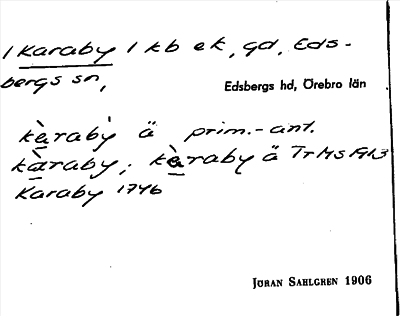 1 Karaby 1 kb ek, gd, Eds-
bergs sn,
Edsbergs hd, Örebro län
kàrabỳ ä prim.-ant.
kàraby; kàraby ä
Karaby 1746
JÖRAN SAHLGREN 1906